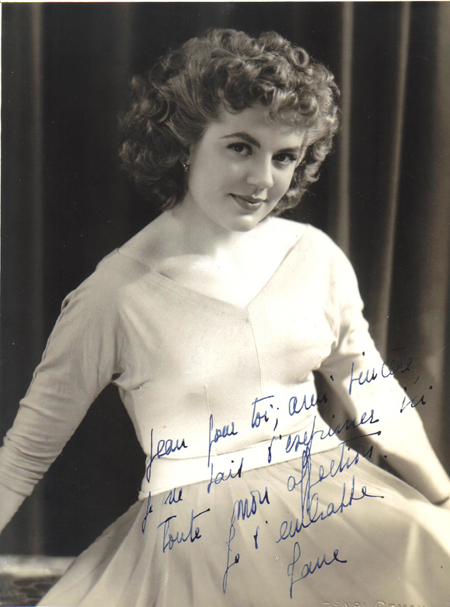 Jean pour toi; ami sincère,
je ne sais t'exprimer ici
toute mon affection.
Je t'embrasse
Jane